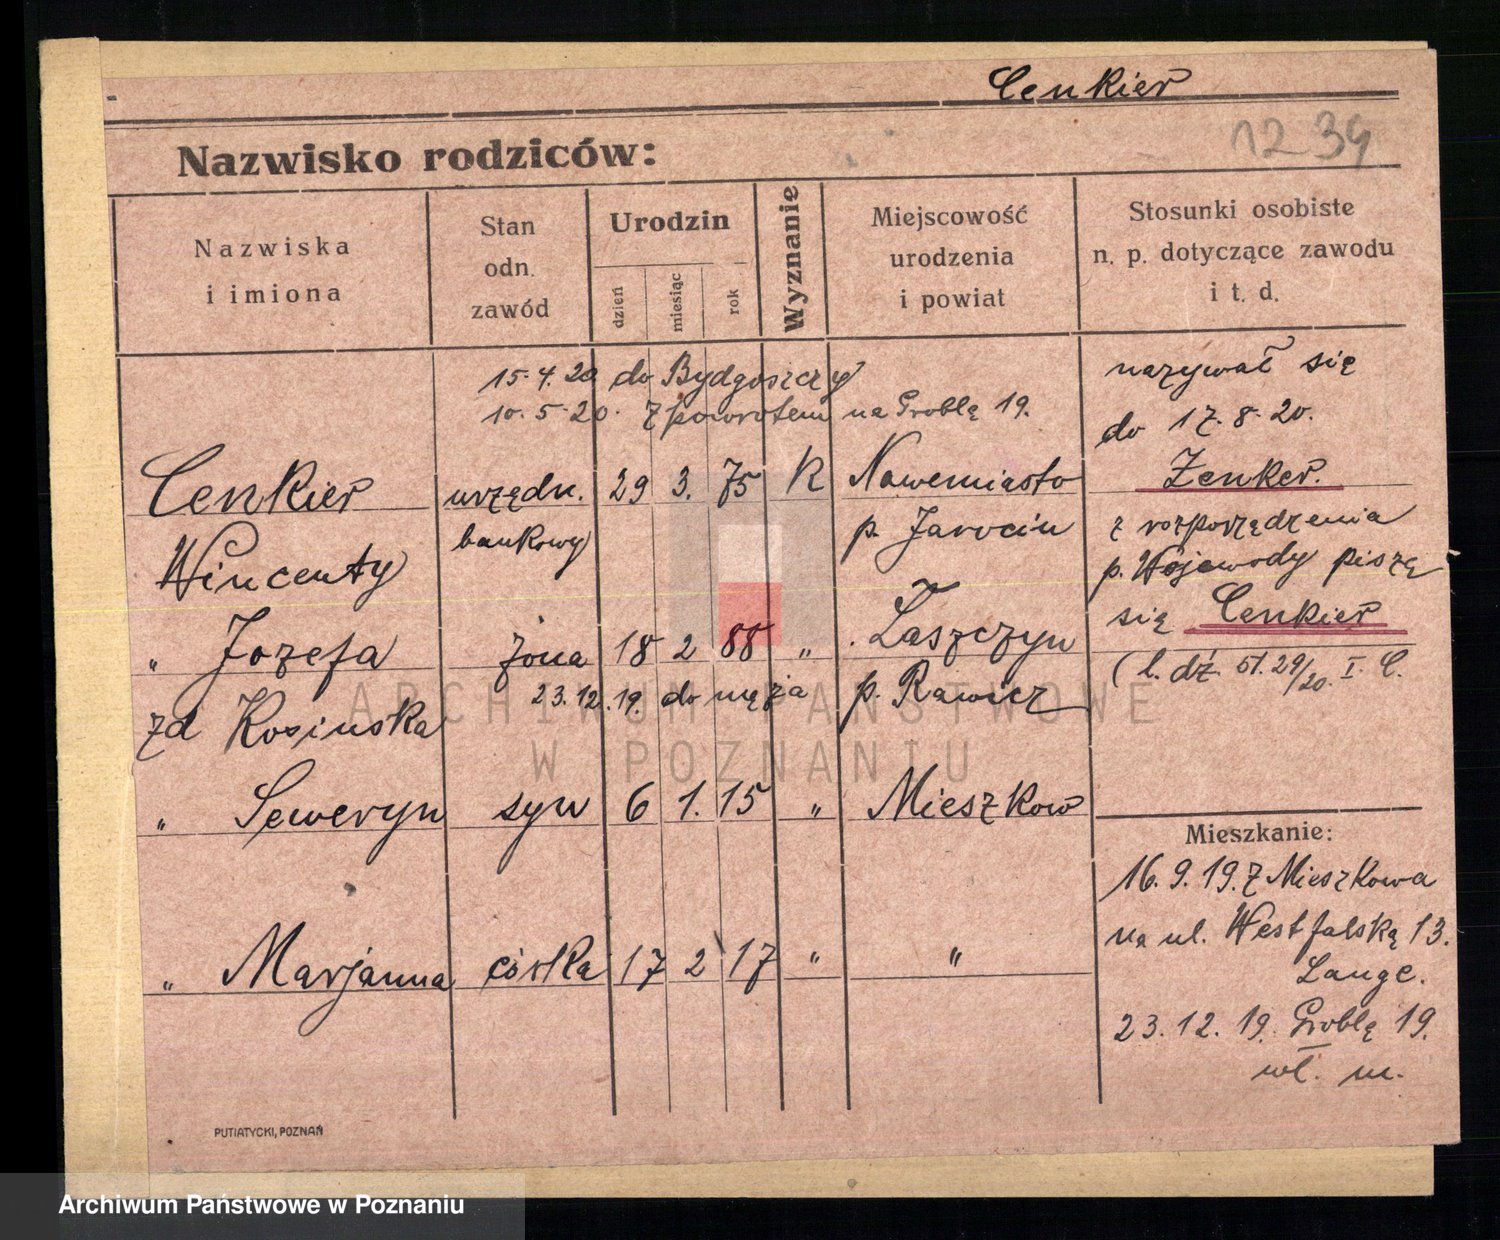 Cenkier
1239
Nazwisko rodziców:
Nazwiska
i imiona
Stan
odn.
zawód
Urodzin
dzień
miesiąc
rok
Wyznanie
Miejscowość
urodzenia
i powiat
Stosunki osobiste
n. p. dotyczące zawodu
i t. d.
15.4.20 do Bydgoszczy
10.5.20. z powrotem na Groblę 19.
Cenkier urzędn. 29 3. 75 R Nowemiasto
Wincenty bankowy p. Jarocin
" Jozefa żona 18 2 88 " Łaszczyn
23.12.19. do męża p. Rawicz
zd Kosinska
" Seweryn syn 6 1. 15 " Mieszkow
" Marjanna córka 17 2 17 " "
nazywał się
do 17.8.20.
Zenker.
z rozporządzenia
p. Wojewody piszę
się Cenkier
(l. dź. 51.29/20. I. C.
Mieszkanie:
16.9.19. z Mieszkowa
na ul. Westfalską 13.
Lange.
23.12.19. Groblę 19.
wł. m.
PUTIATYCKI, POZNAŃ
ARCHIWUM PAŃSTWOWE
W POZNANIU
Archiwum Państwowe w Poznaniu